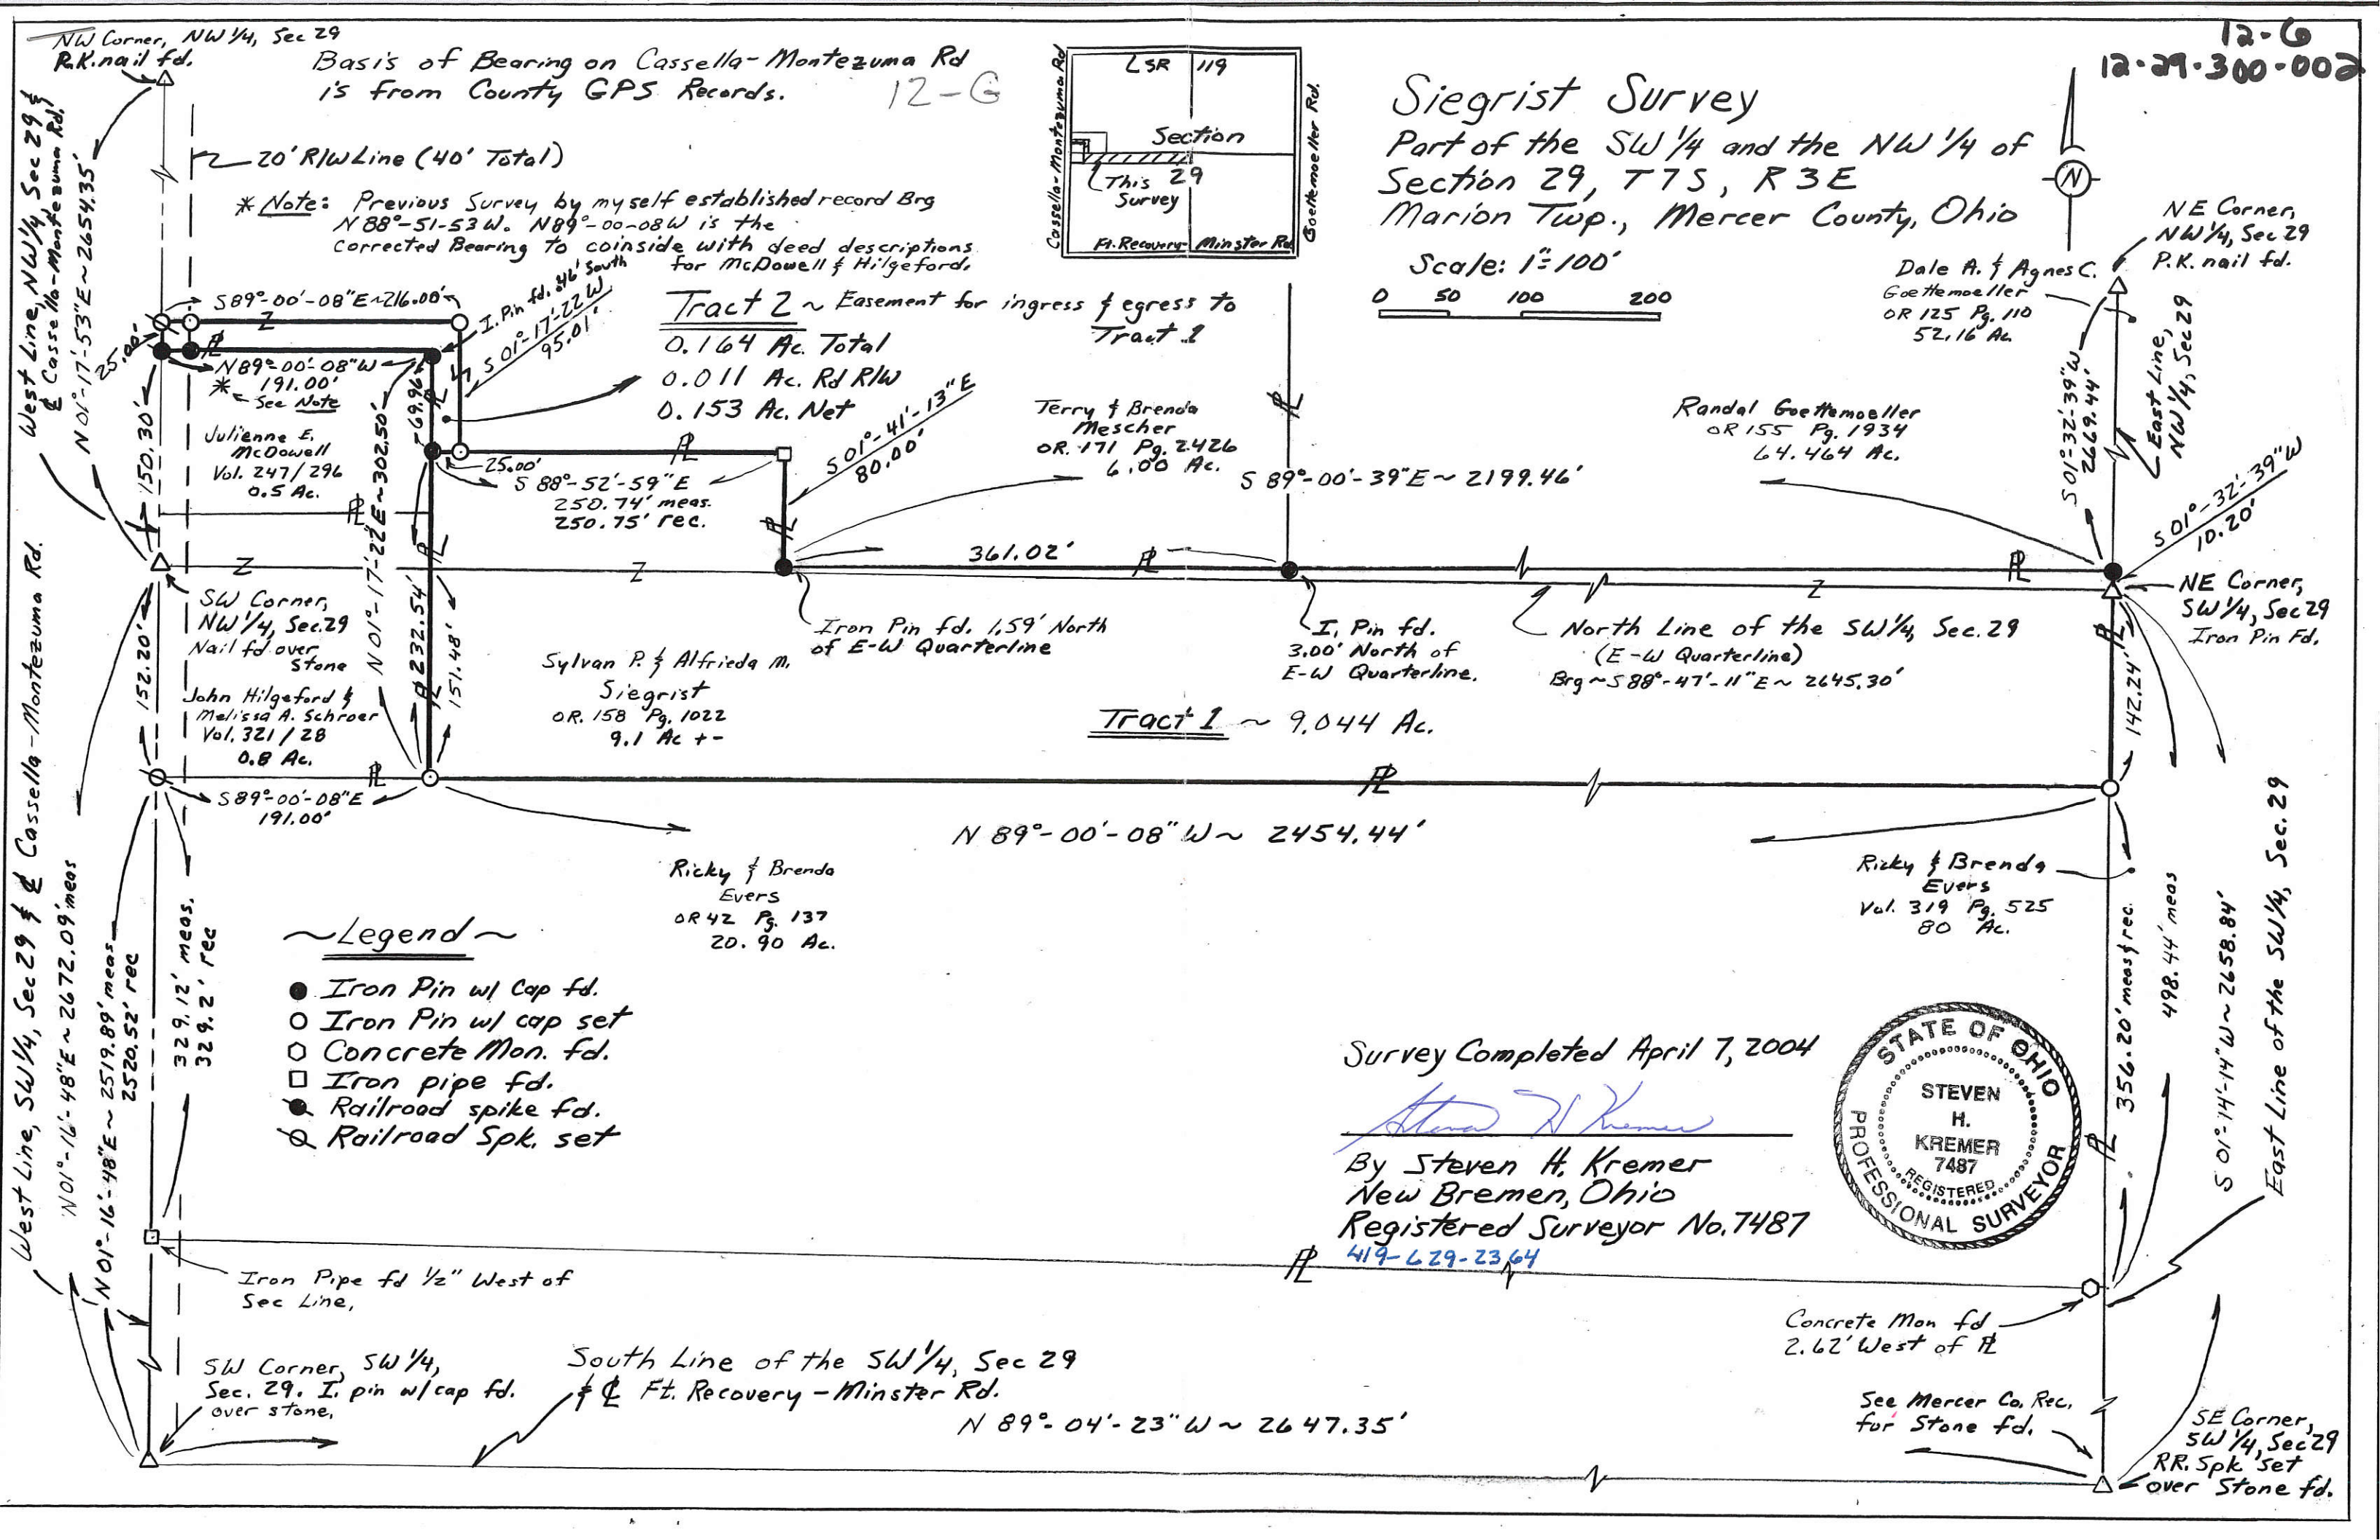 NW Corner, NW 1/4, Sec 29
P.K. nail fd.
Basis of Bearing on Cassella-Montezuma Rd
is from County GPS Records.
12-G
12-G
12-29-300-002
20' R/W Line (40' Total)
* Note: Previous Survey by myself established record Brg
N 88°-51-53 W. N89°-00-08 W is the
corrected Bearing to coinside with deed descriptions
for McDowell & Hilgeford.
SR 119
Section
29
This
Survey
Cassella-Montezuma Rd
Goettemoeller Rd.
Ft. Recovery Minster Rd
Siegrist Survey
Part of the SW 1/4 and the NW 1/4 of
Section 29, T7S, R3E
Marion Twp., Mercer County, Ohio
Scale: 1"=100'
0 50 100 200
N
NE Corner,
NW 1/4, Sec 29
P.K. nail fd.
Dale A. & Agnes C.
Goettemoeller
OR 125 Pg. 110
52.16 Ac.
East Line,
NW 1/4, Sec 29
S 01°-32'-39" W
2669.44'
West Line, NW 1/4, Sec 29 &
℄ Cassella-Montezuma Rd.
N 01°-17'-53" E ~ 2654.35'
S 89°-00'-08" E ~ 216.00'
25.00'
I. Pin fd. .46' South
S 01°-17'-22 W
95.01'
N 89°-00'-08" W
* 191.00'
See Note
69.96'
Tract 2 ~ Easement for ingress & egress to
Tract 1
0.164 Ac. Total
0.011 Ac. Rd R/W
0.153 Ac. Net
Julienne E.
McDowell
Vol. 247/296
0.5 Ac.
150.30'
N 01°-17'-22" E ~ 302.50'
25.00'
S 88°-52'-59" E
250.74' meas.
250.75' rec.
S 01°-41'-13" E
80.00'
Terry & Brenda
Mescher
OR. 171 Pg. 2426
6.00 Ac.
S 89°-00'-39" E ~ 2199.46'
Randal Goettemoeller
OR 155 Pg. 1934
64.464 Ac.
S 01°-32'-39" W
10.20'
361.02'
SW Corner,
NW 1/4, Sec. 29
Nail fd over
Stone
152.20'
232.54'
151.48'
Iron Pin fd. 1.59' North
of E-W Quarterline
I. Pin fd.
3.00' North of
E-W Quarterline.
North Line of the SW 1/4, Sec. 29
(E-W Quarterline)
Brg ~ S 88°-47'-11" E ~ 2645.30'
NE Corner,
SW 1/4, Sec 29
Iron Pin Fd.
Sylvan P. & Alfrieda M.
Siegrist
OR. 158 Pg. 1022
9.1 Ac +-
John Hilgeford &
Melissa A. Schroer
Vol. 321/28
0.8 Ac.
Tract 1 ~ 9.044 Ac.
142.24'
S 89°-00'-08" E
191.00'
N 89°-00'-08" W ~ 2454.44'
Ricky & Brenda
Evers
OR 42 Pg. 137
20.90 Ac.
Ricky & Brenda
Evers
Vol. 319 Pg. 525
80 Ac.
West Line, SW 1/4, Sec 29 & ℄ Cassella-Montezuma Rd.
N 01°-16'-48" E ~ 2672.09' meas
N 01°-16'-48" E ~ 2519.89' meas
2520.52' rec
329.12' meas.
329.2' rec
~Legend~
Iron Pin w/ Cap fd.
Iron Pin w/ cap set
Concrete Mon. fd.
Iron pipe fd.
Railroad spike fd.
Railroad Spk. set
Survey Completed April 7, 2004
Steven H Kremer
By Steven H. Kremer
New Bremen, Ohio
Registered Surveyor No. 7487
419-629-2364
STATE OF OHIO
STEVEN
H.
KREMER
7487
REGISTERED
PROFESSIONAL SURVEYOR
356.20' meas & rec.
498.44' meas
S 01°-14'-14" W ~ 2658.84'
East Line of the SW 1/4, Sec. 29
Iron Pipe fd 1/2" West of
Sec Line.
Concrete Mon fd
2.62' West of ⅊
SW Corner, SW 1/4,
Sec. 29. I. pin w/ cap fd.
over stone.
South Line of the SW 1/4, Sec 29
& ℄ Ft. Recovery - Minster Rd.
N 89°-04'-23" W ~ 2647.35'
See Mercer Co. Rec.
for Stone fd.
SE Corner,
SW 1/4, Sec 29
RR. Spk set
over Stone fd.